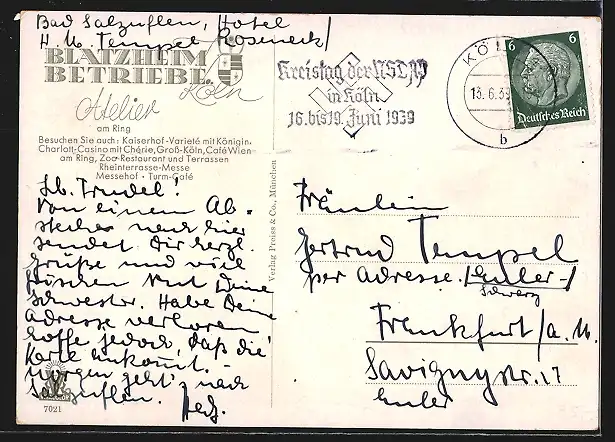 Bad Salzuflen, Hotel
H. M. Tempel Roseneck/
BLATZHEIM
BETRIEBE
Köln
Atelier
am Ring
Besuchen Sie auch: Kaiserhof-Varieté mit Königin,
Charlott-Casino mit Chérie, Groß-Köln, Café Wien
am Ring, Zoo-Restaurant und Terrassen
Rheinterrasse-Messe
Messehof · Turm-Café
Lb. Trudel!
Von einem Ab-
stecher nach hier
sendet Dir herzl.
Grüße und viel
Deine
Schwester. Habe Deine
Adresse verloren
hoffe jedoch, daß die
Karte ankommt. -
Morgen geht's nach
Salzuflen.
7021
Verlag Preiss & Co., München
Kreistag der NSDAP
in Köln
16. bis 19. Juni 1939
KÖLN
13.6.39
b
6 6
Deutsches Reich
Fräulein
Gertrud Tempel
per Adresse /Euler-/
Frankfurt/a. M.
Savignystr. 17
Euler